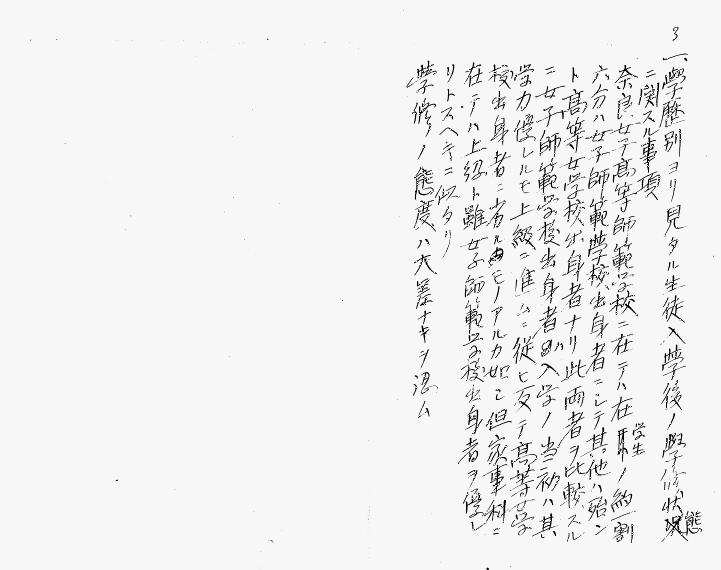 3
一、學歴別ヨリ見タル生徒入學後ノ學修状態
ニ関スル事項
奈良女子高等師範学校ニ在テハ在学生ノ約一割
六分ハ女子師範學校出身者ニシテ其他ハ殆ン
ト高等女学校出身者ナリ此両者ヲ比較スル
ニ女子師範学校出身者ハ入学ノ当初ハ其
学力優レルモ上級ニ進ムニ從ヒ反テ高等女学
校出身者ニ劣ルモノアルカ如シ但家事科ニ
在テハ上級ト雖女子師範学校出身者ヲ優レ
リトスヘキニ似タリ
學修ノ態度ハ大差ナキヲ認ム